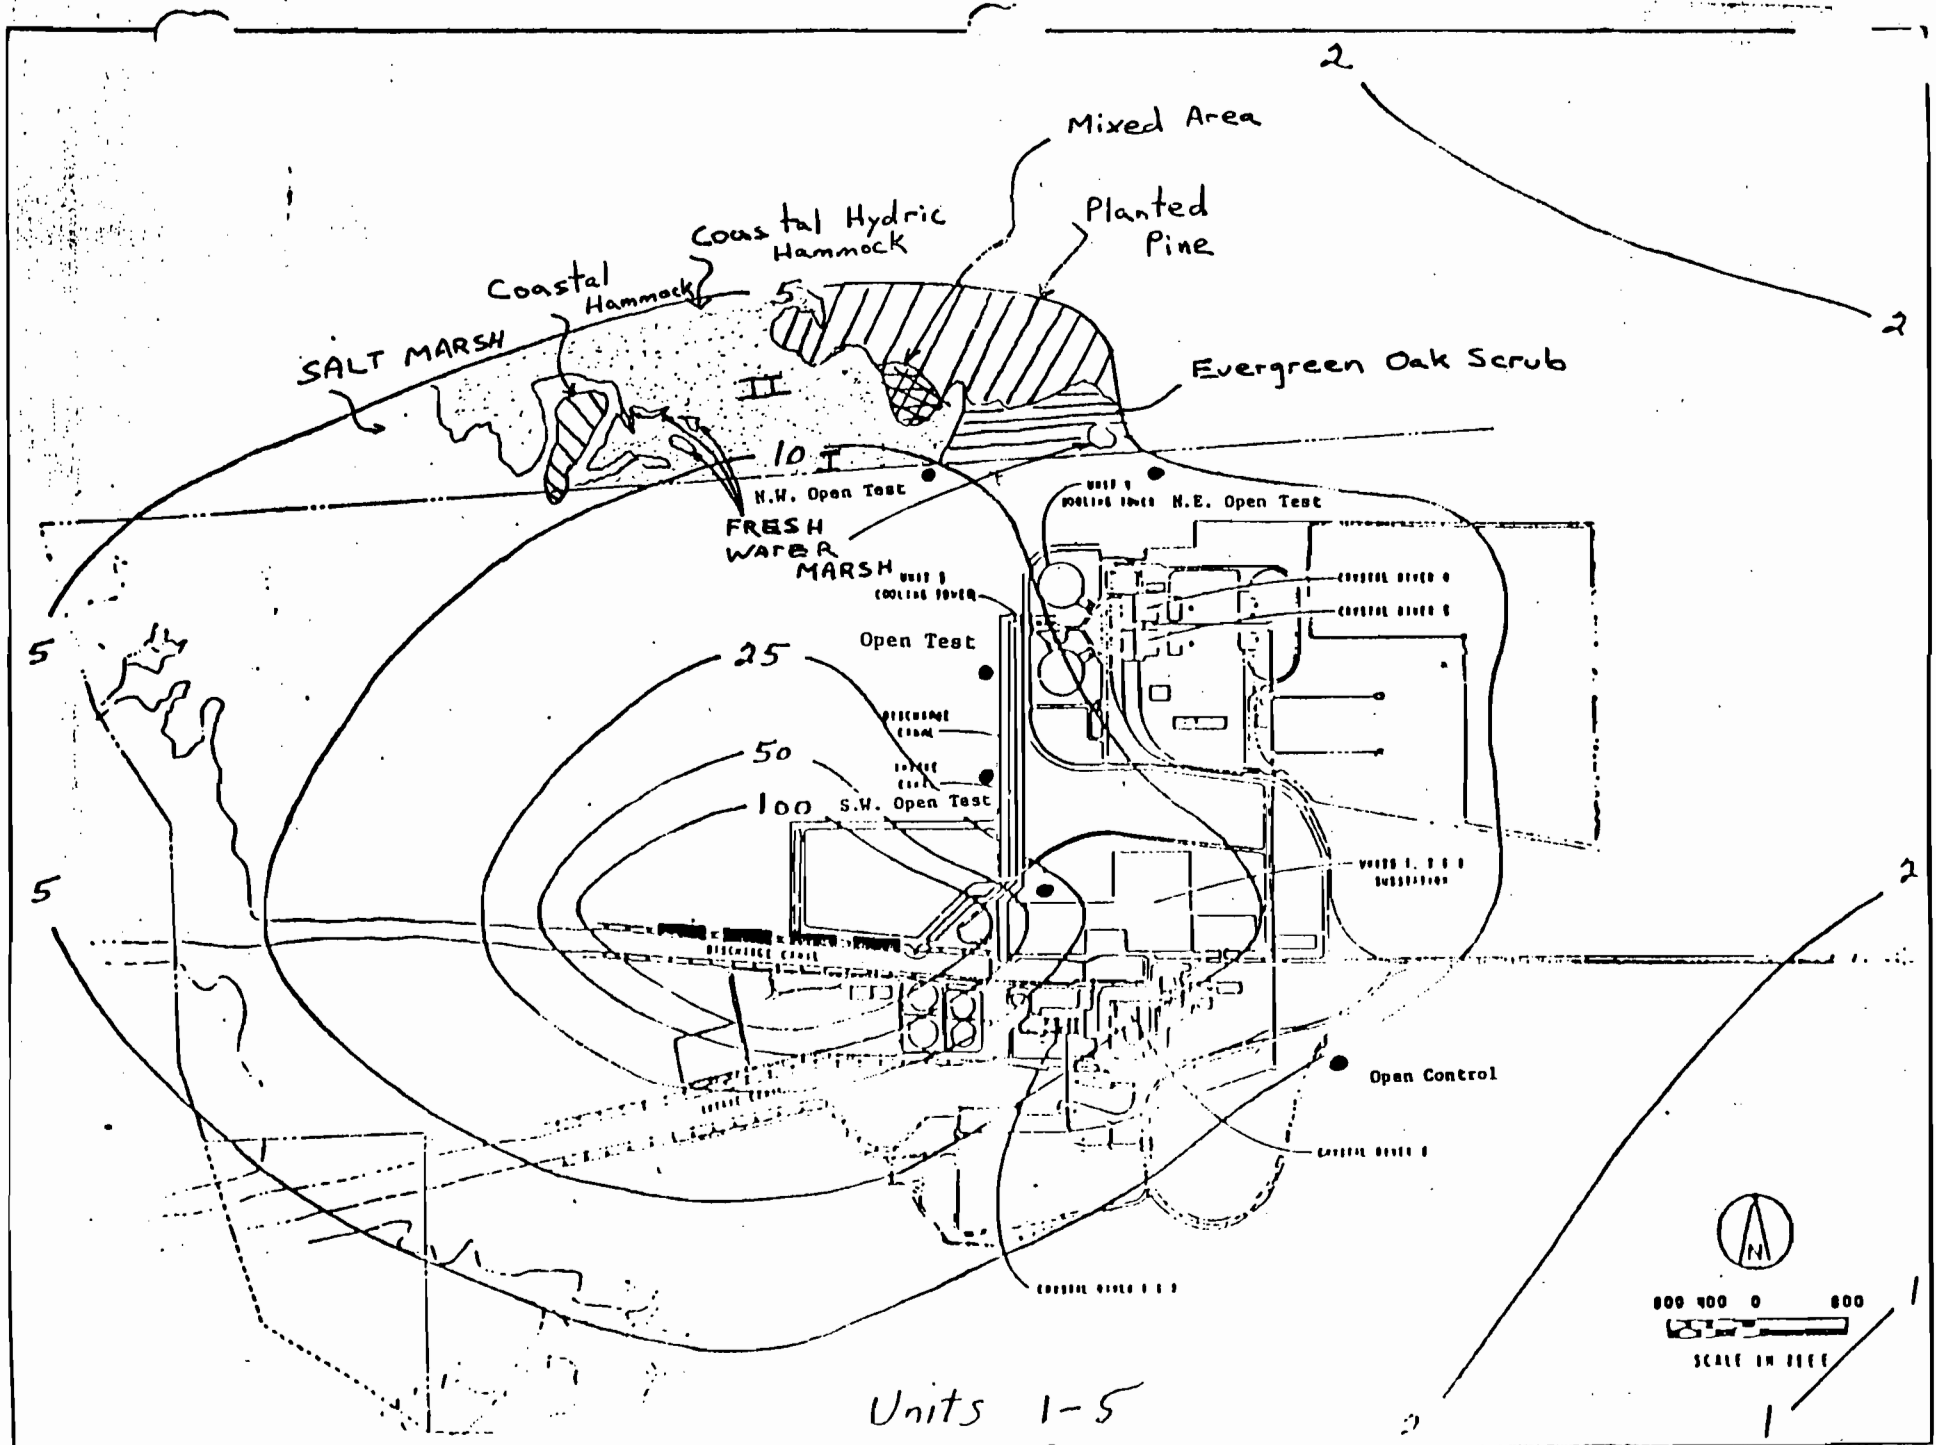 2
Mixed Area
Planted
Pine
Coastal Hydric
Hammock
Coastal
Hammock
5
SALT MARSH
2
Evergreen Oak Scrub
II
10 I
N.W. Open Test
N.E. Open Test
UNIT 4
COOLING TOWER
FRESH
WATER
MARSH
COOLING TOWER
CRYSTAL RIVER
CRYSTAL RIVER
5
Open Test
25
DISCHARGE
CANAL
50
INTAKE
CANAL
100
S.W. Open Test
5
SUBSTATION
2
DISCHARGE CANAL
INTAKE CANAL
Open Control
CRYSTAL RIVER
CRYSTAL RIVER
N
800 400 0 800
SCALE IN FEET
1
Units 1-5
2
1